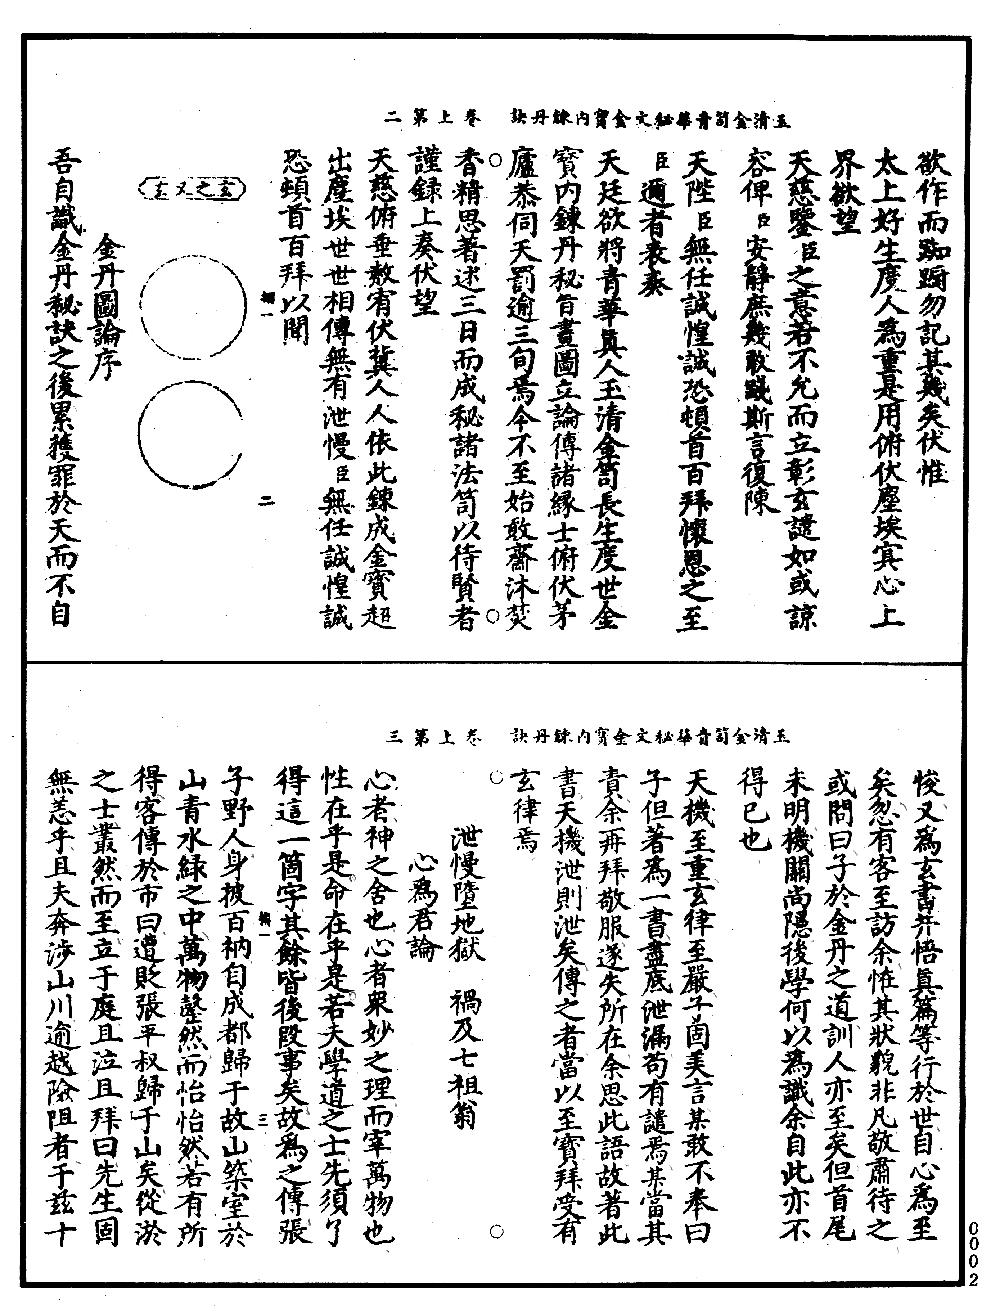 玉清金笥青華秘文金寶內鍊丹訣　卷上第二
欲作而踟躕勿記其幾矣伏惟
太上好生度人為重是用俯伏塵埃寘心上
界欲望
天慈鑒臣之意若不允而立彰玄譴如或諒
容俾臣安靜庶幾敢踐斯言復陳
天陛臣無任誠惶誠恐頓首百拜懷恩之至
臣邇者表奏
天廷欲將青華真人玉清金笥長生度世金
寶內鍊丹秘旨畫圖立論傳諸緣士俯伏茅
廬恭伺天罰逾三旬焉今不至始敢齋沐焚
香精思著述三日而成秘諸法笥以待賢者
謹録上奏伏望
天慈俯垂敷宥伏冀人人依此鍊成金寶超
出塵埃世世相傳無有泄慢臣無任誠惶誠
恐頓首百拜以聞
二
玄之又玄
金丹圖論序
吾自識金丹秘訣之後累獲罪於天而不自
玉清金笥青華秘文金寶內鍊丹訣　卷上第三
悛又為玄書并悟真篇等行於世自心為至
矣忽有客至訪余恠其狀貌非凡敬肅待之
或問曰子於金丹之道訓人亦至矣但首尾
未明機關尚隱後學何以為識余自此亦不
得已也
天機至重玄律至嚴子固美言某敢不奉曰
子但著為一書盡底泄漏苟有譴焉某當其
責余再拜敬服遂失所在余思此語故著此
書天機泄則泄矣傳之者當以至寶拜受有
玄律焉
泄慢墮地獄　禍及七祖翁
心為君論
心者神之舍也心者衆妙之理而宰萬物也
性在乎是命在乎是若夫學道之士先須了
得這一箇字其餘皆後段事矣故為之傳張
三
子野人身披百衲自成都歸于故山築室於
山青水緑之中萬物罄然而怡怡然若有所
得客傳於市曰遭貶張平叔歸于山矣從淤
之士叢然而至立于庭且泣且拜曰先生固
無恙乎且夫奔涉山川逾越險阻者于玆十
0002